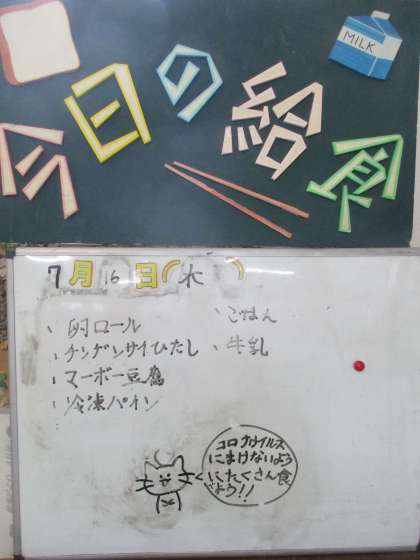 今日の給食
MILK
7月16日(木)
、卵ロール
、チンゲンサイひたし
、マーボー豆腐
、冷凍パイン
、ごはん
、牛乳
コロナウイルス
にまけないよう
にたくさん食
べよう!!